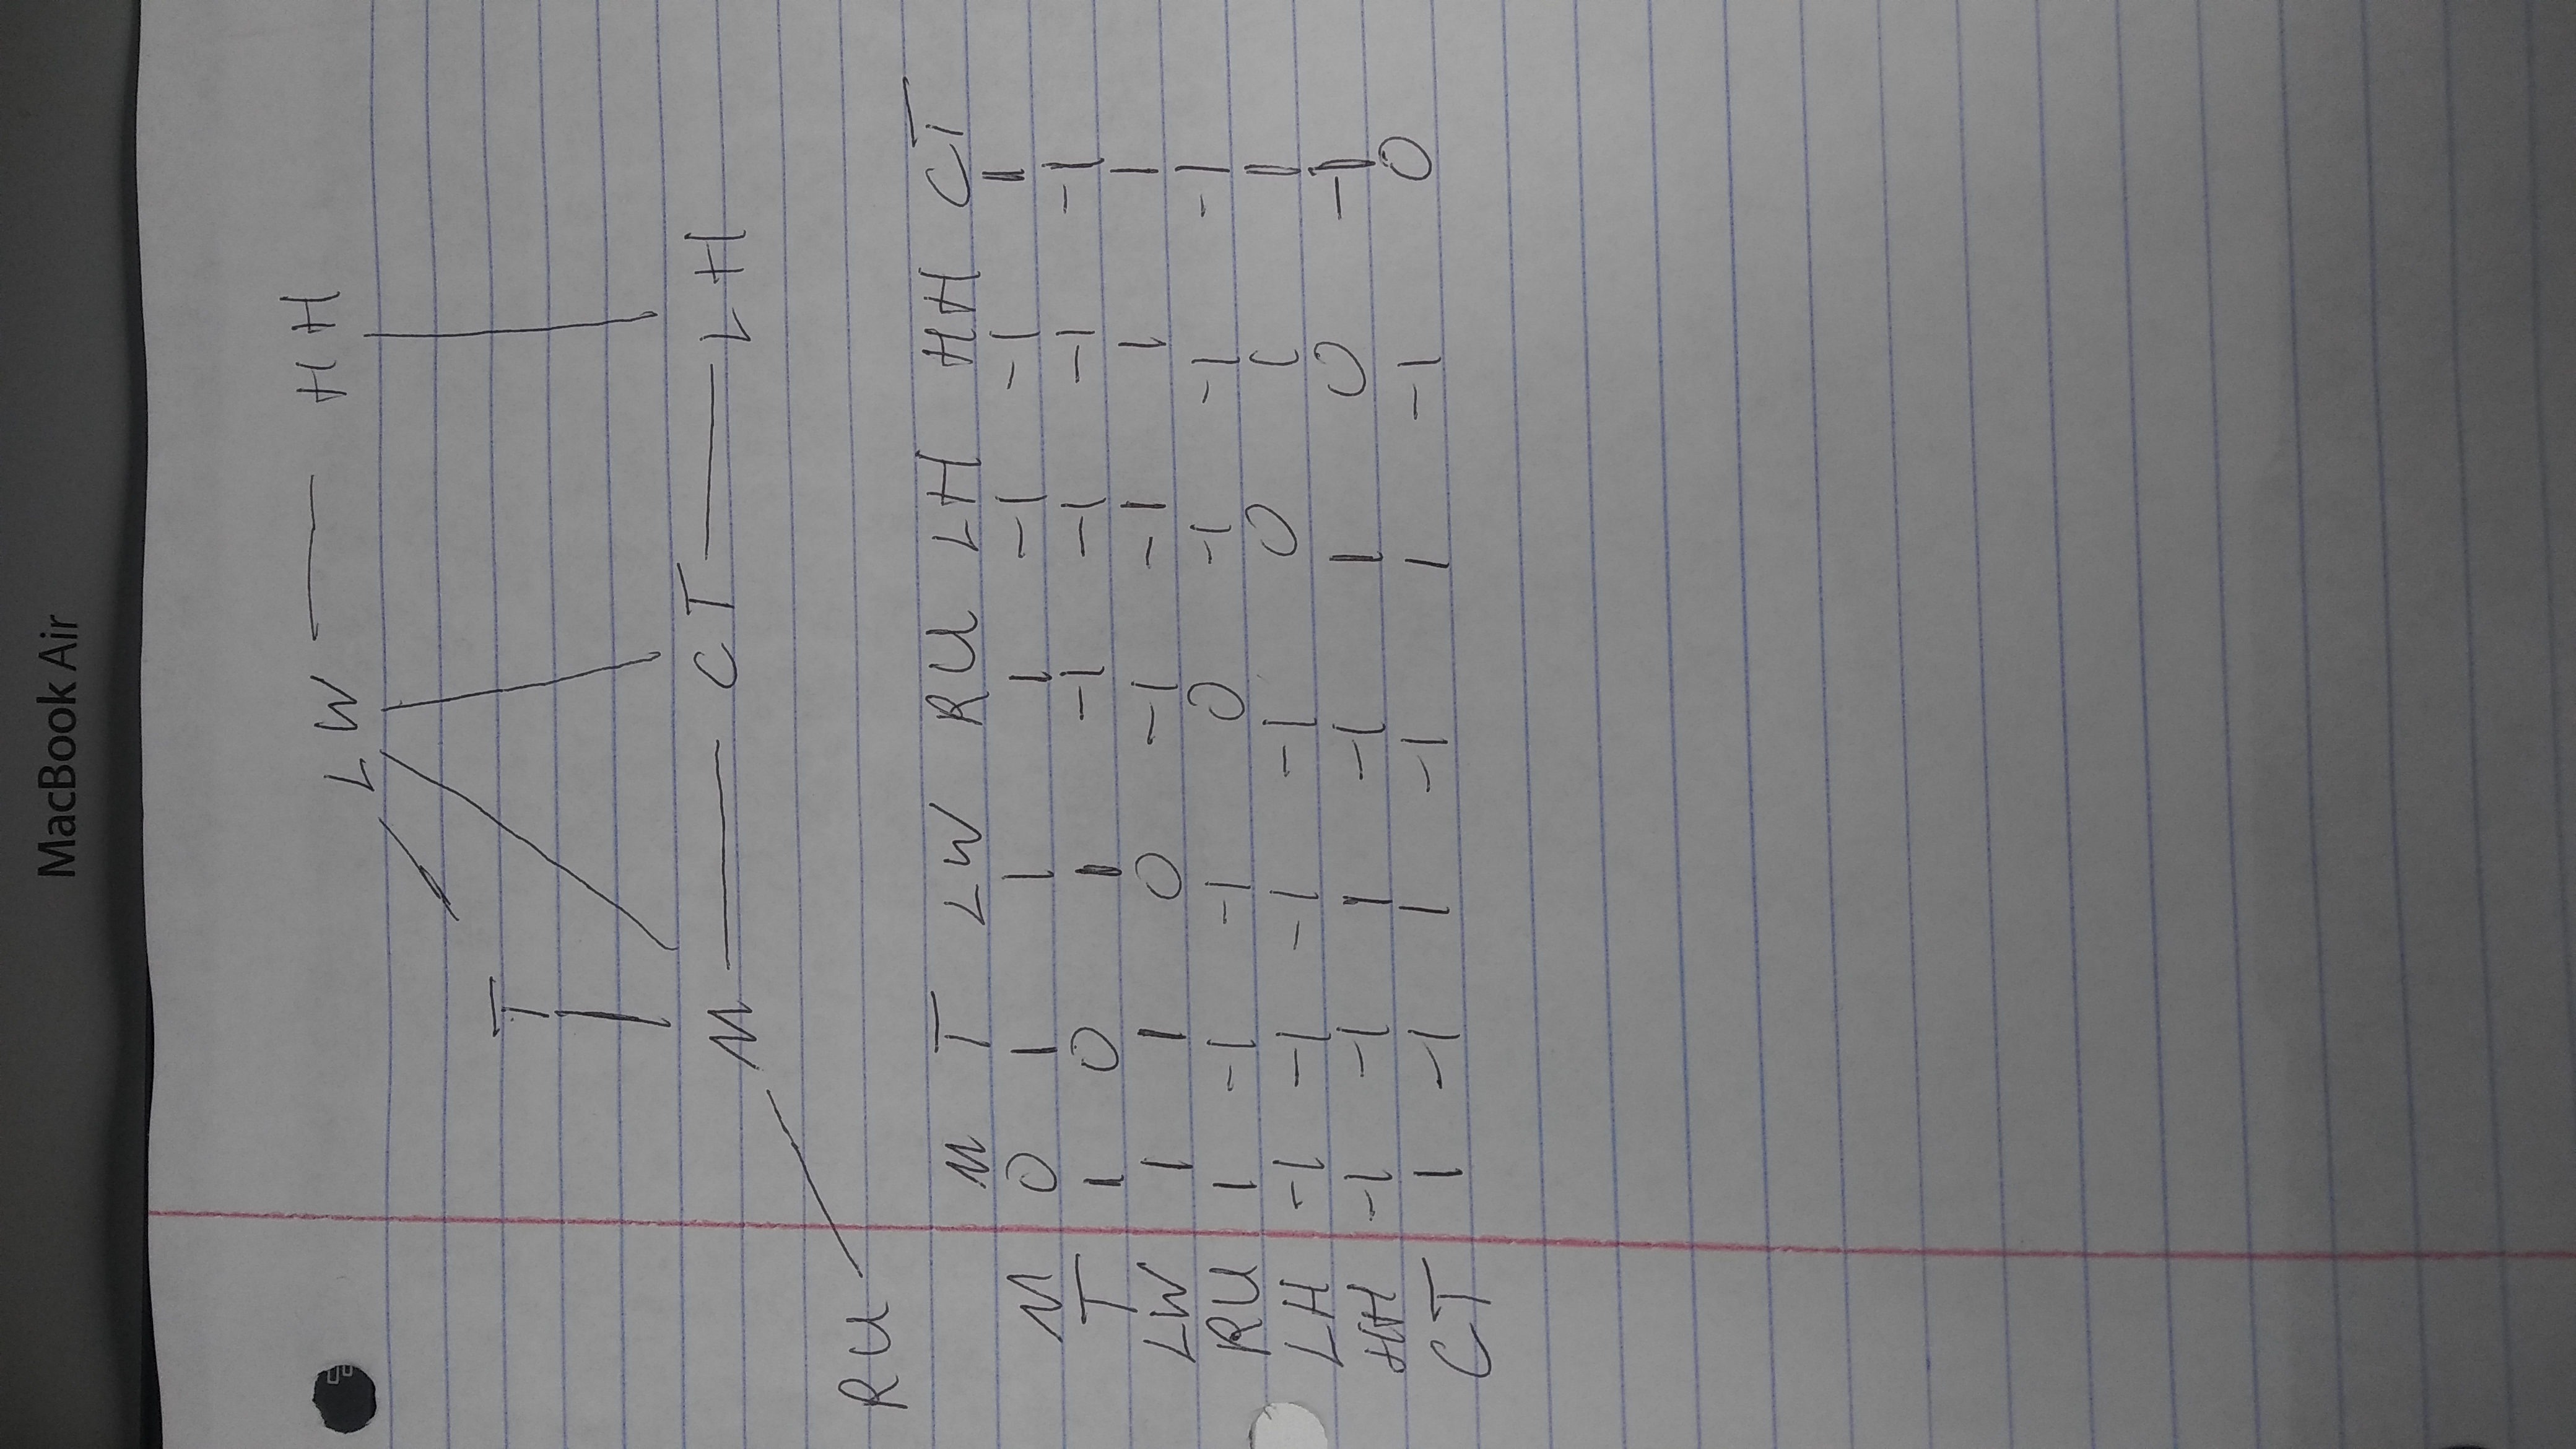 MacBook Air
LW HH
T
M CT LH
RU
M T LW RU LH HH CT
M 0 1 1 1 -1 -1 1
T 1 0 1 -1 -1 -1 -1
LW 1 1 0 -1 -1 1 1
RU 1 -1 -1 0 -1 -1 -1
LH -1 -1 -1 -1 0 1 1
HH -1 -1 1 -1 1 0 -1
CT 1 -1 1 -1 1 -1 0